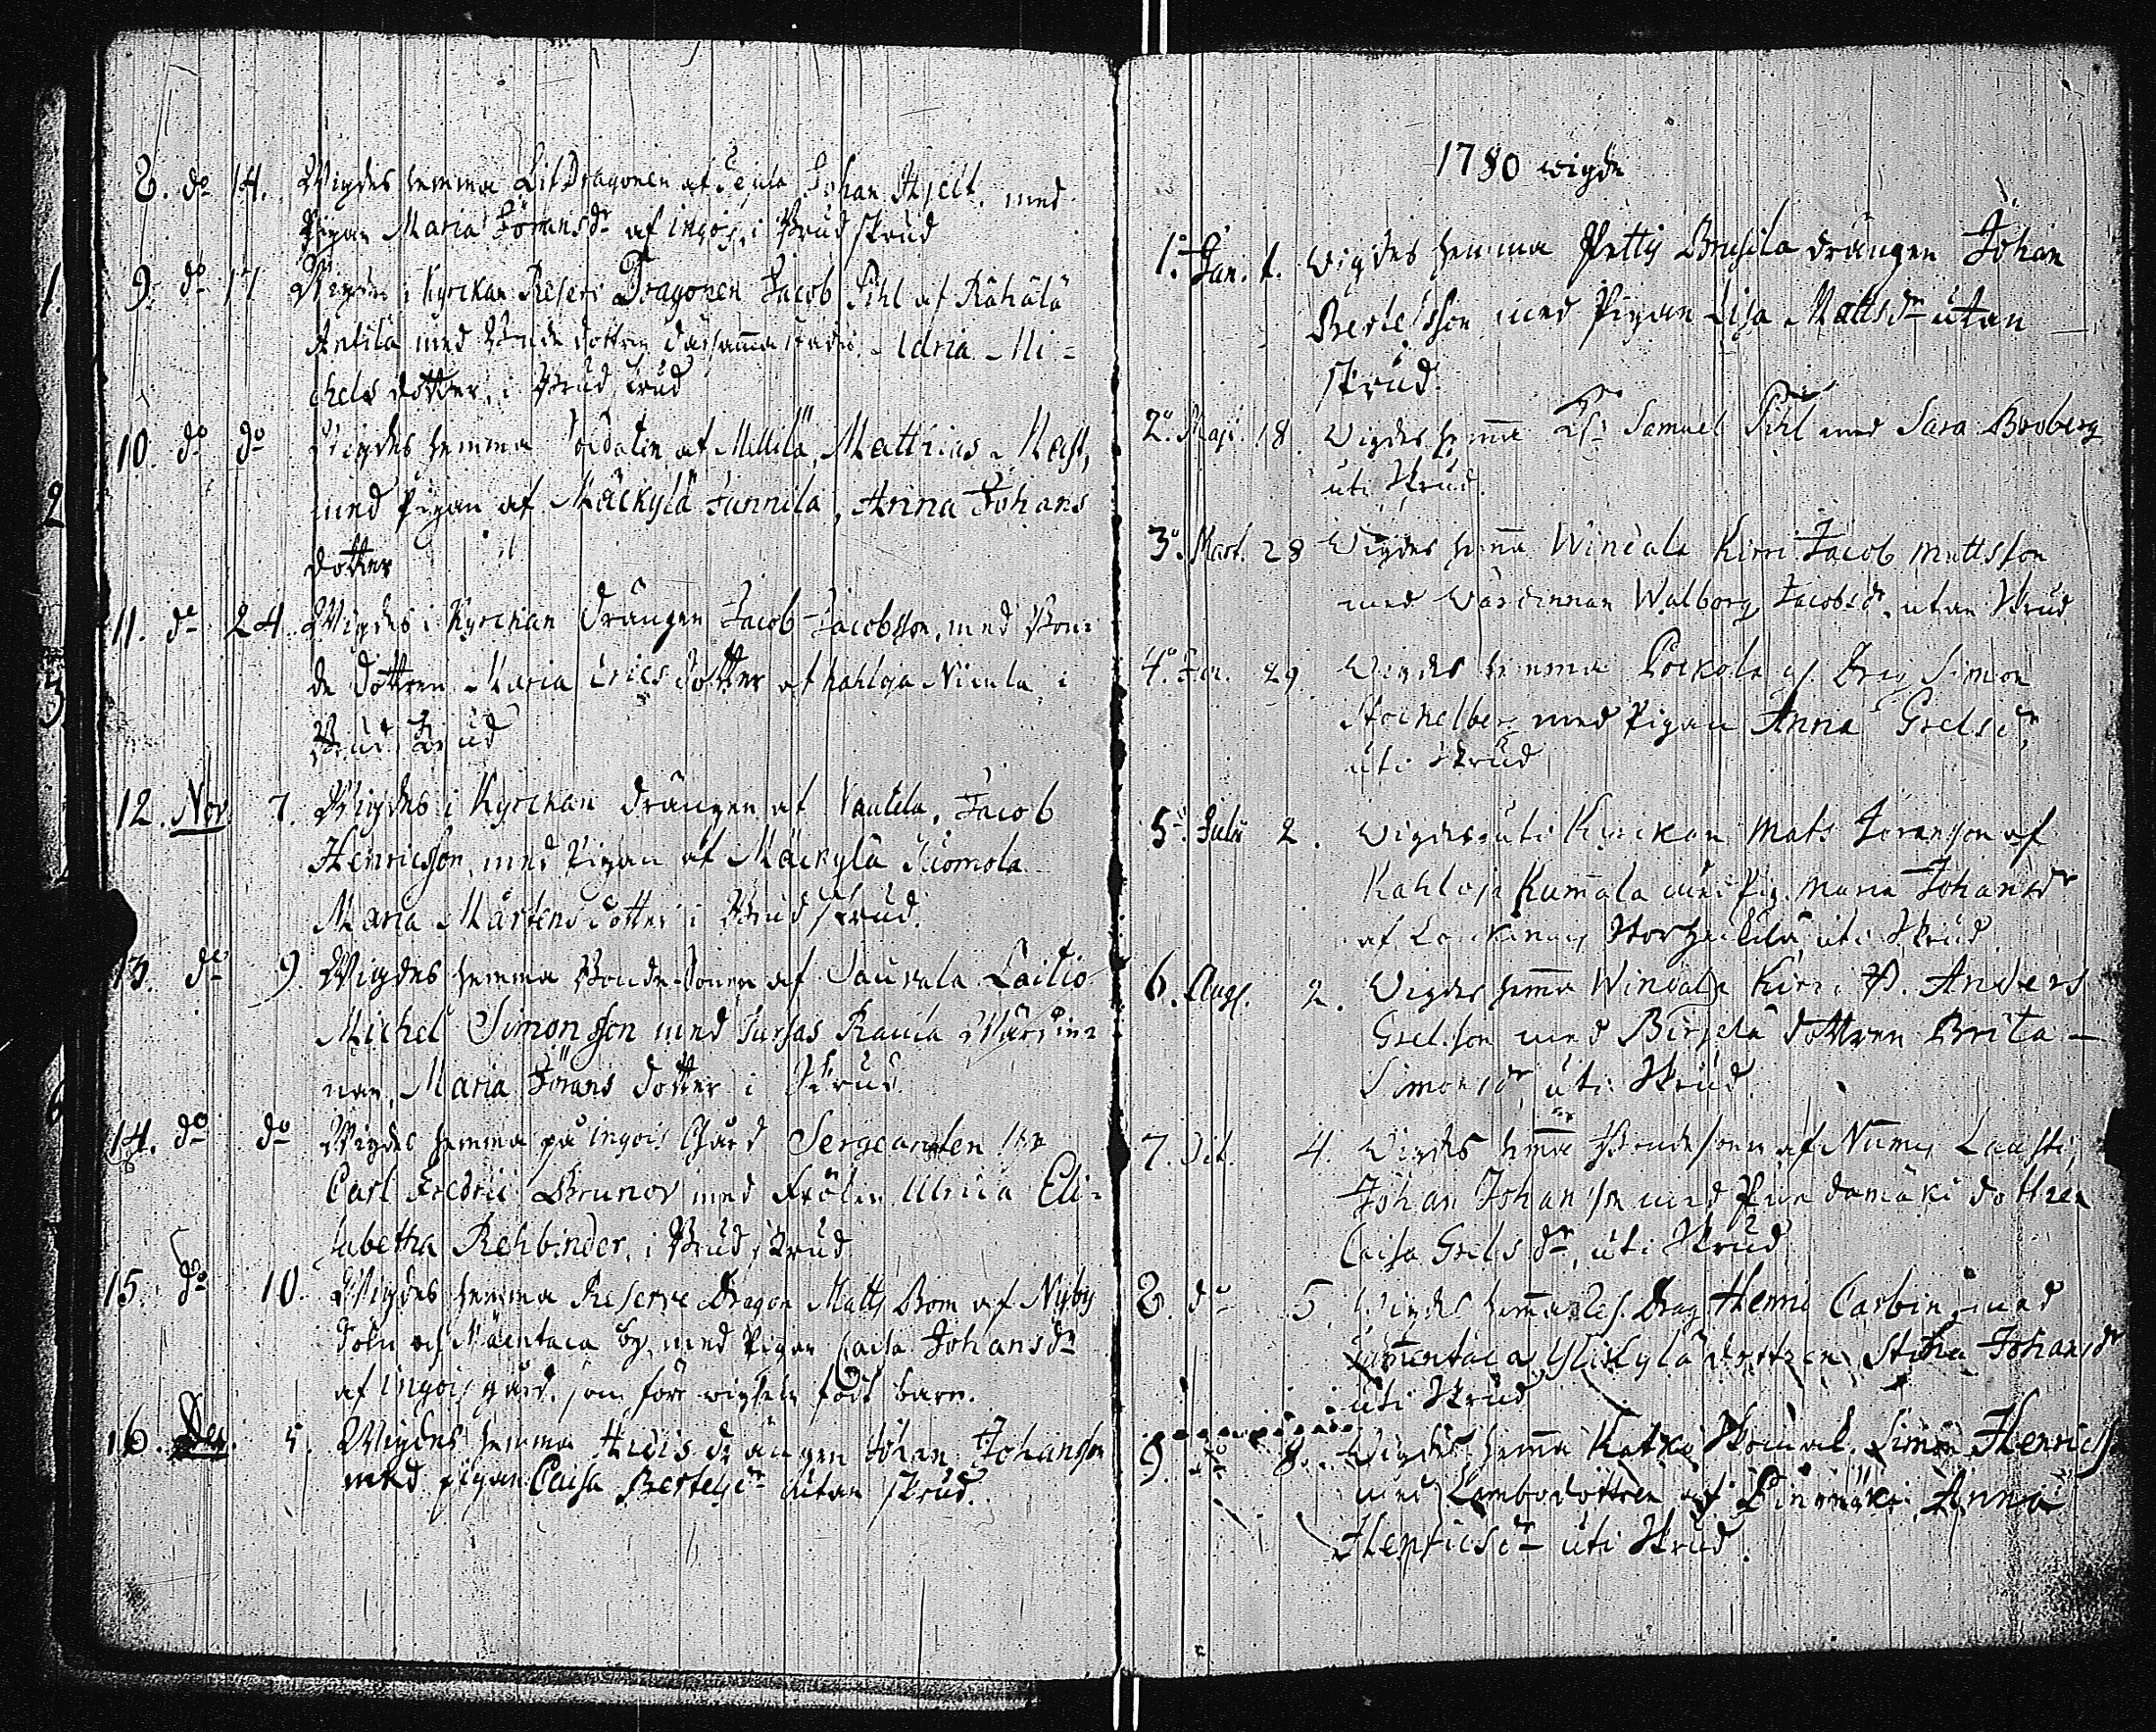 8. do 14. Wigdes hemma Lif Dragonen af Johan Hjelt, med
Pigan Maria Jöransdr af ingois i Brud skrud
9. do 17 Wigde i Kyrckan Reserv Dragonen Jacob Pihl af Rähälä
Antila med Bonde dottren dersamma stades Maria Mi=
chels dotter, i Brud skrud
10. do do Wigdes hemma Soldaten af Mellilä, Matthias Mast,
med Pigan af Mäckylä Junnila, Anna Johans
dotter
11. do 24. Wigdes i Kyrckan Drängen Jacob Jacobsson, med Bon=
de dottren Maria Erics dotter af kahloja Nicula i
Brud skrud
12. Nov. 7. Wigdes i Kyrckan drängen af Vautila, Jacob
Henricsson, med Pigan af Mäckylä Suomola
Maria Mårtens dotter i Brud skrud.
13. do 9. Wigdes hemma Bonde Sonen af Sauvala Laitio
Michel Simonsson med Raula Wärdin=
nan, Maria Jörans dotter i Skrud.
14. do do Wigdes hemma på ingois Gård Sergeanten Hr
Carl Fredric Brunow med Frölen Ulrica Eli=
sabetha Rehbinder, i Brud skrud
15. do 10. Wigdes hemma Reserve Dragon Matts Bom af Nyby
och Mäentaca by, med Pigan Caisa Johansdr
af ingois gård, som före wigseln födt barn.
16. Dec. 5. Wigdes hemma Huvis drängen Johan Johansson
med pigan Caisa Bertelsdr utan skrud.
1780 wigde
1. Jan. 1. Wigdes hemma Pettis Brusila drängen Johan
Bertelsson med Pigan Lisa Mattsdr utan
skrud.
2. Maji. 18. Wigdes hema Samuel Pihl med Sara Broberg
uti Skrud.
3. Mart. 28 Wigdes hema Windala Kirri Jacob Mattsson
med Wärdinnan Walborg Jacobsdr utan Skrud.
4. 29. Wigdes hemma Pockola Drag Simon
Stockelberg med Pigan Anna Grelsdr
uti Skrud
5. Julii 2. Wigdes uti Kyrckan Mats Joransson af
Kahloja Kumala med Pig. Maria Johansdr
af uti Skrud.
6. Aug. 2. Wigdes hema Windala Kirri Anders
Grelsson med Birjelä dottren Brita
Simonsdr uti Skrud.
7. Oct. 4. Wigdes hema Bondesonen af Numis Lausti,
Johan Johansson med dottren
Caisa Grelsdr, uti Skrud
8. do 5. Wigdes hemma Res. Drag Henric Carbin med
Ylickylä dottren Stina Johansdr
uti Skrud
9. do 8. Wigdes hema Simon Henricss.
med dottren af Anna
Henricsdr uti Skrud.